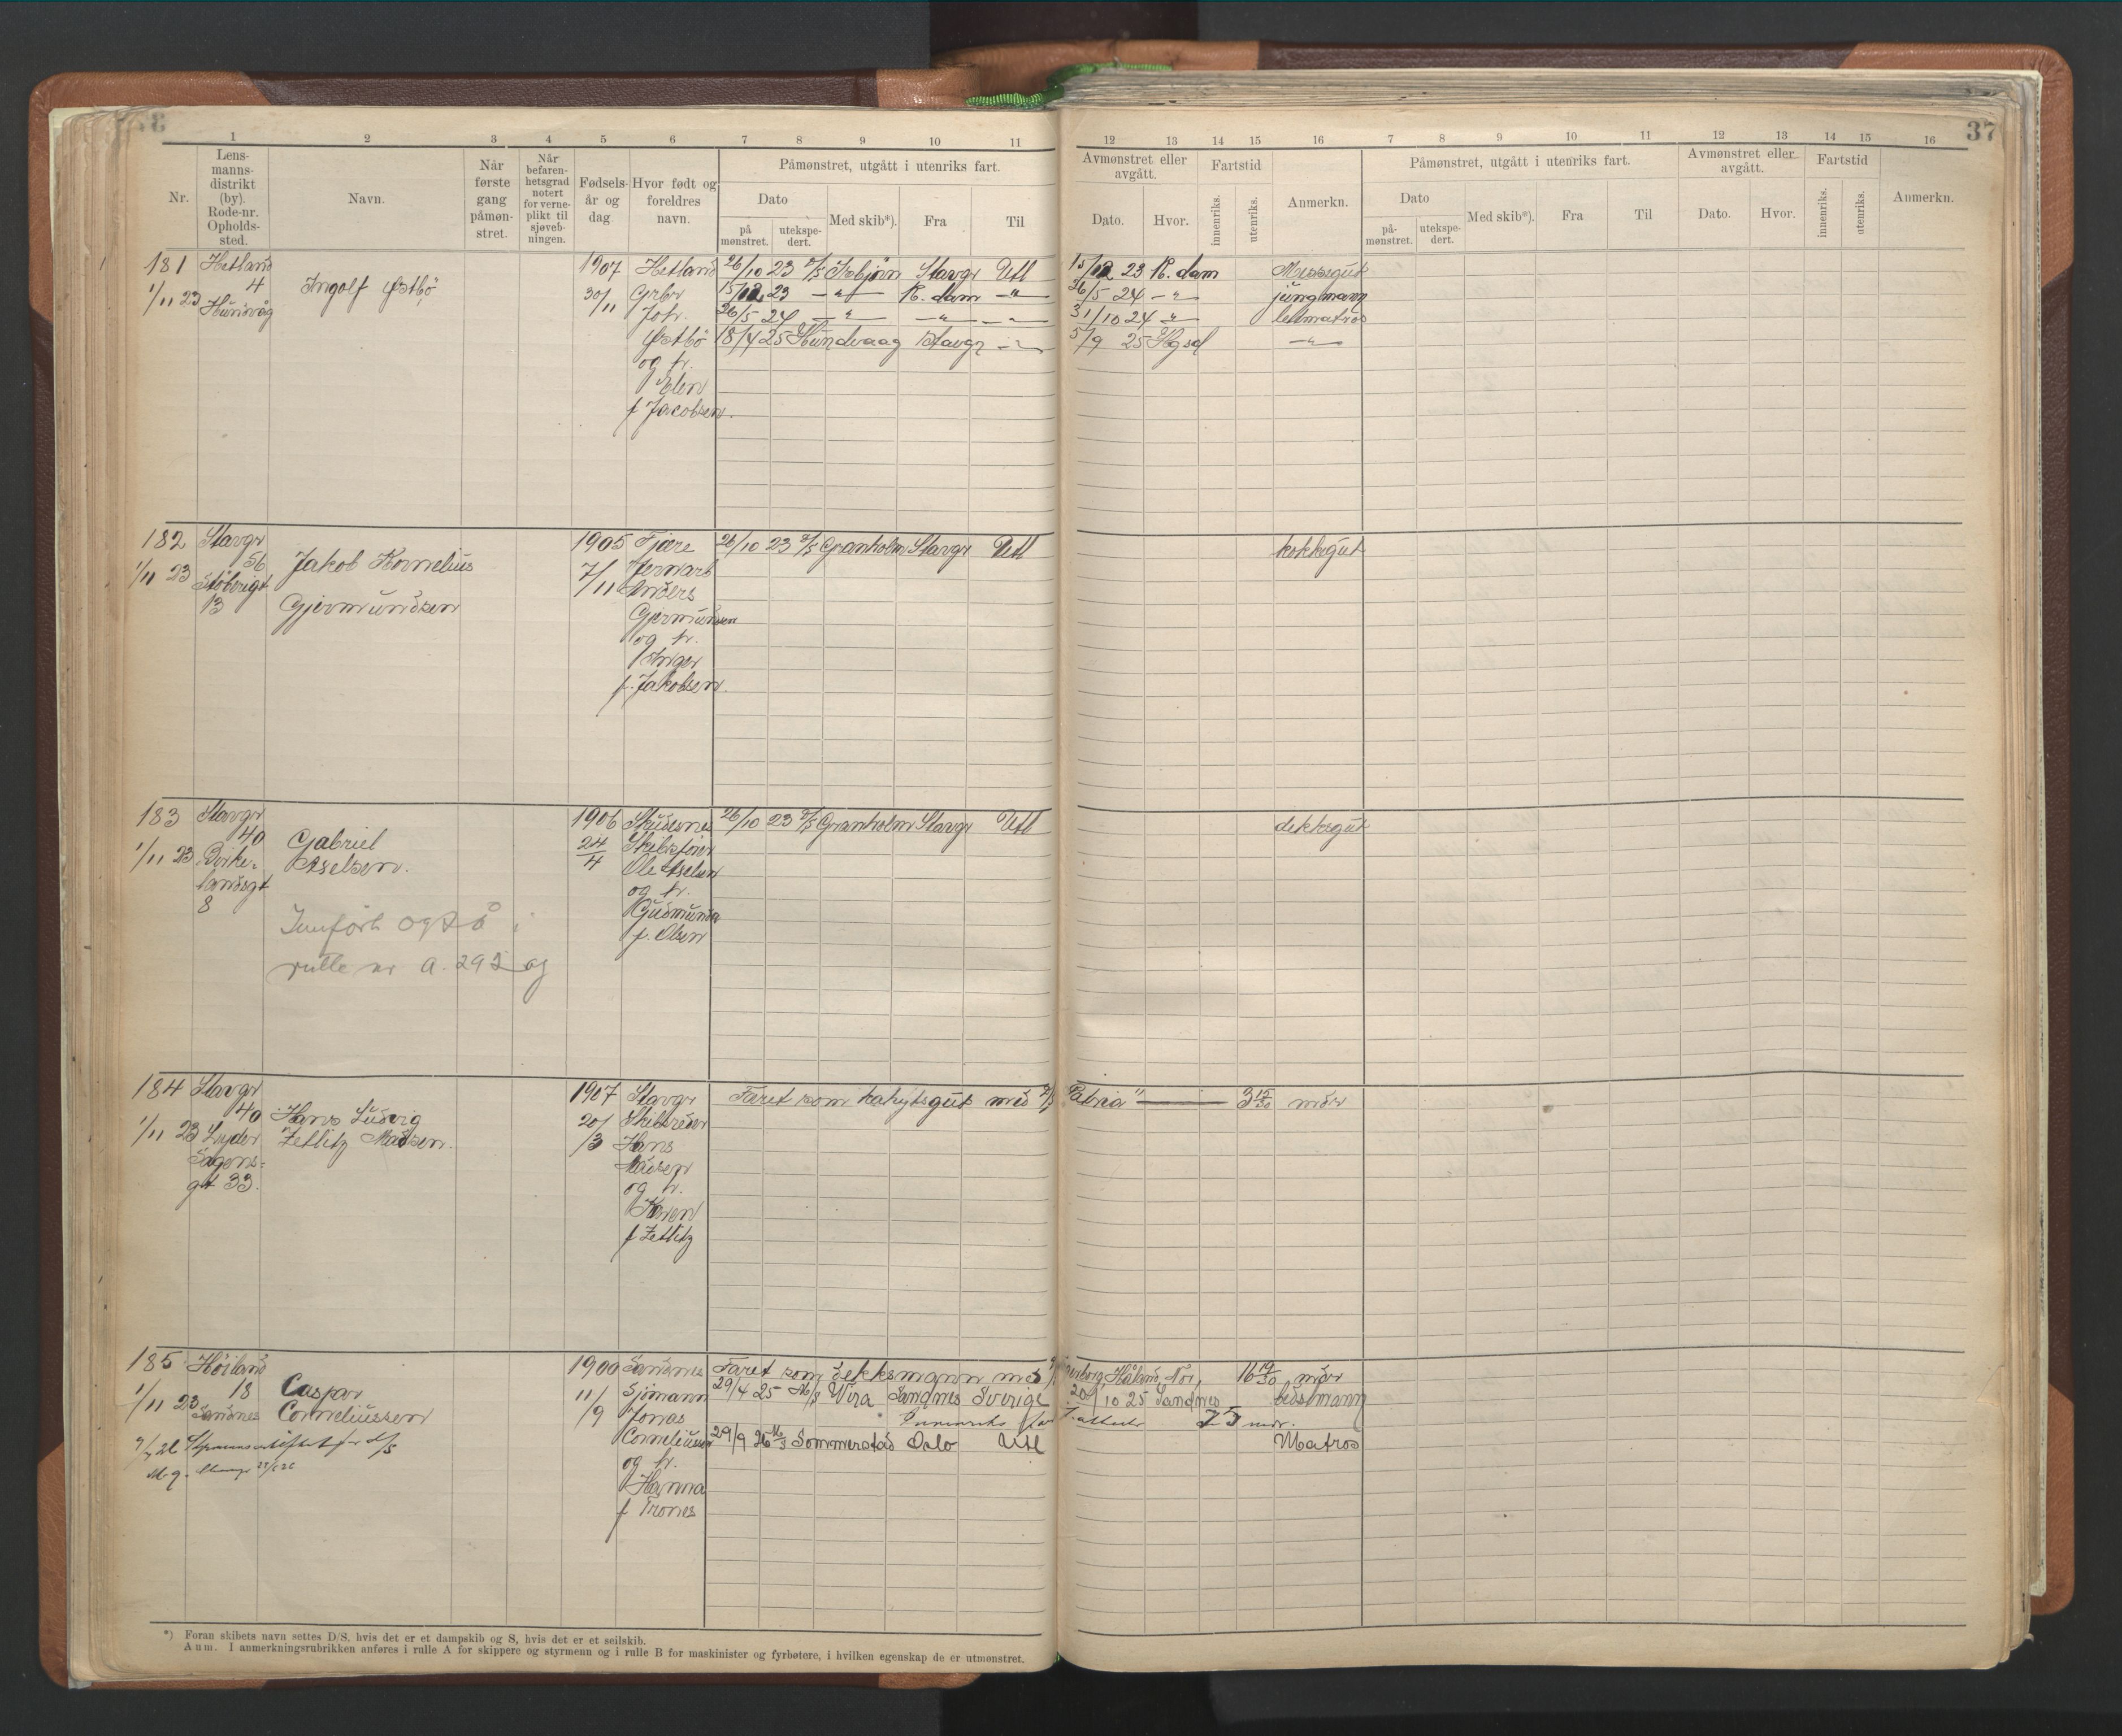 37
1 2 3 4 5 6 7 8 9 10 11 12 13 14 15 16 7 8 9 10 11 12 13 14 15 16
Nr.
Lens-
manns-
distrikt
(by).
Rode-nr.
Opholds-
sted.
Navn.
Når
første
gang
påmøn-
stret.
Når
befaren-
hetsgrad
notert
for verne-
plikt til
sjøveb-
ningen.
Fødsels-
år og
dag.
Hvor født og
foreldres
navn.
Påmønstret, utgått i utenriks fart.
Dato
på
mønstret.
utekspe-
dert.
Med skib*).
Fra
Til
Avmønstret eller
avgått.
Dato.
Hvor.
Fartstid
innenriks.
utenriks.
Anmerkn.
Påmønstret, utgått i utenriks fart.
Dato
på-
mønstret.
utekspe-
dert.
Med skib*).
Fra
Til
Avmønstret eller
avgått.
Dato.
Hvor.
Fartstid
innenriks.
utenriks.
Anmerkn.
181
1/11 23
Hetland
4
Hundvåg
Ingolf Østbö
1907
30/11
Hetland
Grbr
Joh.
Østbö
og h.
Elen
f Jacobsen.
26/10 23 D/S Isbjörn Stavgr Utl 15/12 23 R.dam Messegut
15/12 23 —"— R.dam —"— 26/5 24 —"— jungmann
26/5 24 —"— —"— —"— 31/10 24 " lettmatros
18/4 25 Hundvaag Stavgr —"— 5/9 25 Hgsd —"—
182
1/11 23
Stavgr
56
Støberigt
13
Jakob Kornelius
Gjermundsen
1905
7/11
Fjære
Jernarb
Anders
Gjermundsen
og h.
Inger
f. Jakobsen.
26/10 23 D/S Granholm Stavgr Utl kokksgut
183
1/11 23
Stavgr
40
Birke-
landsgt
8
Gabriel
Aselsen.
Innført også i
rulle nr a. 292 og
1906
24/4
Skudesnes
Skibsfører
Ole Aselsen
og h.
Gudmunda
f. Olsen
26/10 23 D/S Granholm Stavgr Utl dekksgut
184
1/11 23
Stavgr
40
Lyder
Sagens-
gt 33.
Hans Ludvig
Zetlitz Madsen.
1907
20/3
Stavgr
Skibsreder
Hans
Madsen
og h.
Karen
f Zetlitz
Faret som kahytsgut med D/S "Patria" — 3 15/30 mdr
185
1/11 23
Höiland
18
Sandnes
Caspar
Corneliussen
1900
11/9
Sandnes
Sjömann
Jonas
Corneliussen
og h.
Hanna
f Trones
Faret som dekksmann med Håland, 16 19/30 mdr
29/4 25 M/S Vira Sandnes Sverige 20/10 25 Sandnes båsmann
7 attester 75 mdr.
29/9 26 M/S Sommerstad Oslo Utl Matros
*) Foran skibets navn settes D/S, hvis det er et dampskib og S, hvis det er et seilskib.
Anm. I anmerkningsrubrikken anføres i rulle A for skippere og styrmenn og i rulle B for maskinister og fyrbøtere, i hvilken egenskap de er utmønstret.